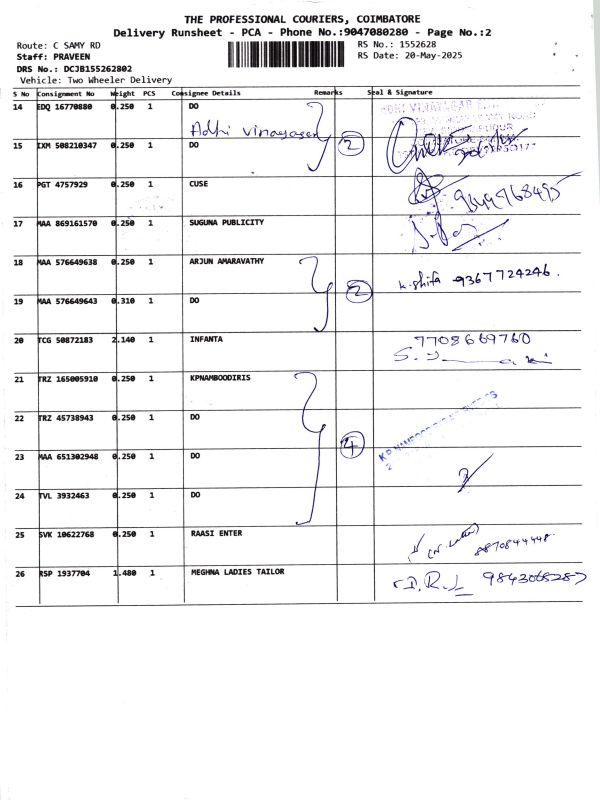 THE PROFESSIONAL COURIERS, COIMBATORE
Delivery Runsheet - PCA - Phone No.:9047080280 - Page No.:2
Route: C SAMY RD RS No.: 1552628
Staff: PRAVEEN RS Date: 20-May-2025
DRS No.: DCJB155262802
Vehicle: Two Wheeler Delivery
S No Consignment No Weight PCS Consignee Details Remarks Seal & Signature
14 EDQ 16770880 0.250 1 DO
Adhi Vinayagaser
15 IXM 508210347 0.250 1 DO 2
16 PGT 4757929 0.250 1 CUSE
17 MAA 869161570 0.250 1 SUGUNA PUBLICITY
18 MAA 576649638 0.250 1 ARJUN AMARAVATHY
2 k. shifa 9367724246.
19 MAA 576649643 0.310 1 DO
20 TCG 50872183 2.140 1 INFANTA 7708669760
21 TRZ 165005910 0.250 1 KPNAMBOODIRIS
22 TRZ 45738943 0.250 1 DO
23 MAA 651302948 0.250 1 DO 4
24 TVL 3932463 0.250 1 DO
25 SVK 10622768 0.250 1 RAASI ENTER 8870844448
26 RSP 1937704 1.480 1 MEGHNA LADIES TAILOR 9843068287